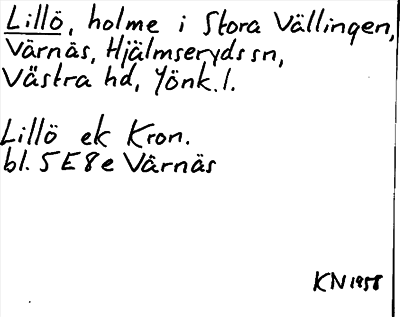 Lillö, holme i Stora Vällingen,
Värnäs, Hjälmseryds sn,
Västra hd, Jönk. l.
Lillö ek Kron.
bl. 5 E 8 e Värnäs
KN 1958